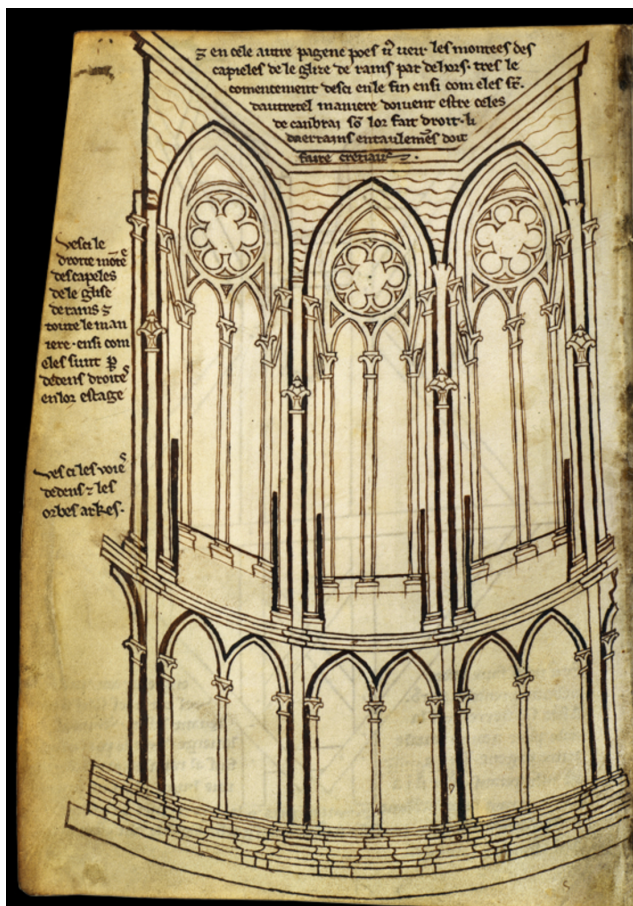 ⁊ en cele autre pagene poes vͦ ueir les montees des
capieles de le glize de rains par dehors. tres le
comencement desci en le fin ensi com eles st̃.
dautretel maniere doiuent estre celes
de canbrai sõ lor fait droit. li
daerrains entaulemẽs doit
faire cretiaus
Vesci le
droite
des capeles
de le glise
de rains ⁊
toute le man
iere. ensi com
eles sunt ꝑ
dedens droites
en lor estage
Ves ci les voies
dedens ⁊ les
orbes arkes.